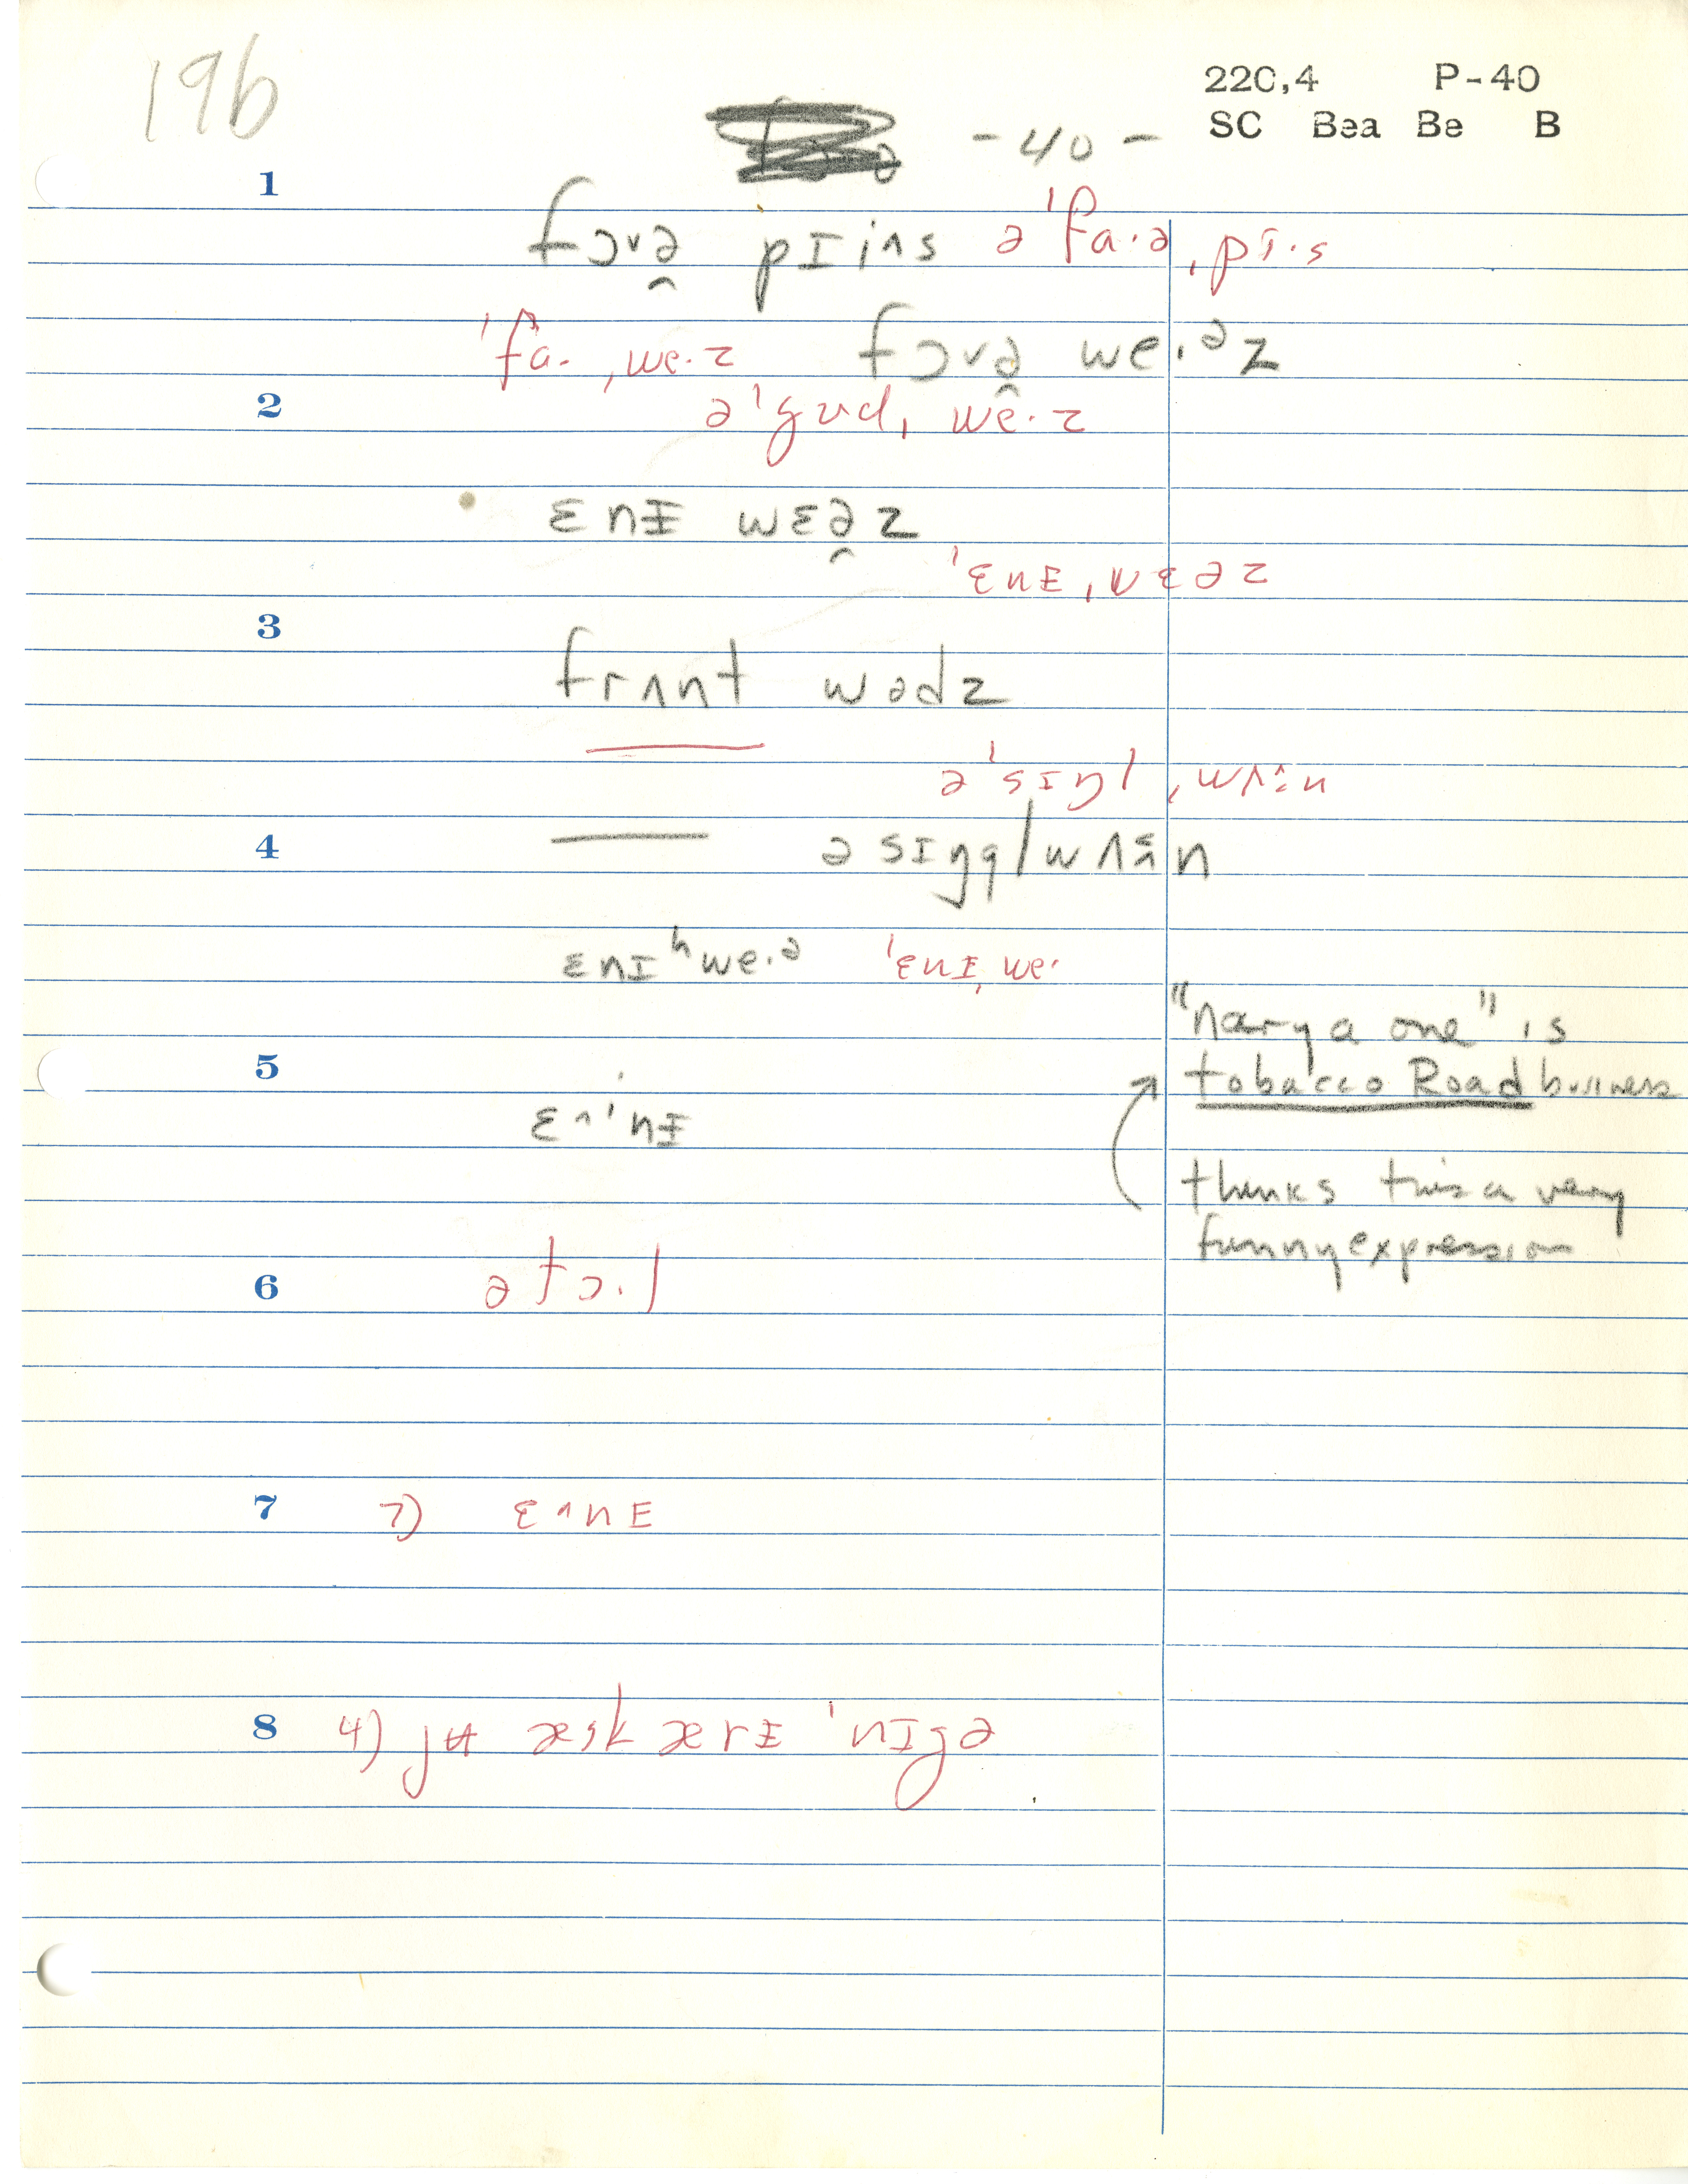 19b
220,4 P-40
SC Bea Be B
- 40 -
1
fɔvə̯ pɪiʌs ə'fa·ə,pɪ̄·s
'fa·,we·z fɔvə̯ we·ᵊz
2
ə'gʊd,we·z
ɛnɪ̵ wɛə̯z
'ɛnɪ̵,wɛəz
3
frʌnt wədz
ə'sɪŋl,wʌ·n
4
ə sɪŋgl wʌn
ɛnɪʰwe·ᵊ 'ɛnɪ̵,we·
"nary a one" is
5
tobacco Road business
ɛ^'nɪ̵
thinks this a very
funny expression
6
ətɔ·l
7
7) ɛ^nɪ
8
4) jʉ æsk ærɪ̵ 'nɪgə